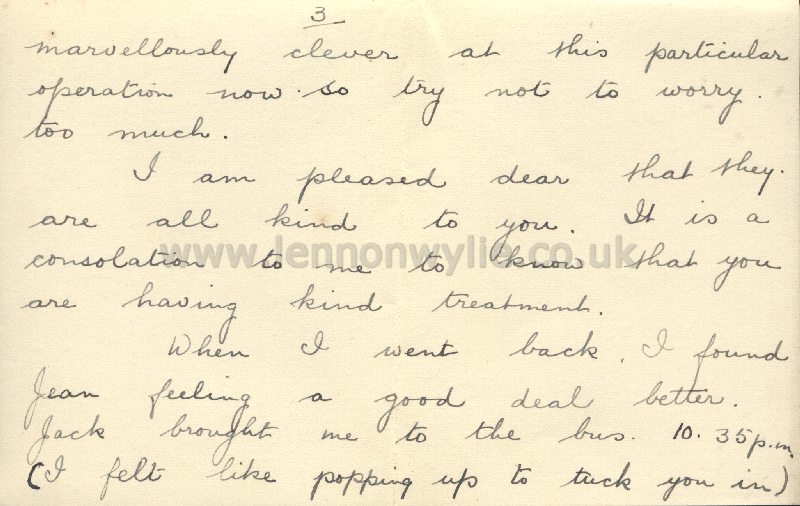 3
marvellously clever at this particular
operation now. so try not to worry.
too much.
I am pleased dear that they.
are all kind to you. It is a
www.lennonwylie.co.uk
consolation to me to know that you
are having kind treatment.
When I went back, I found
Jean feeling a good deal better.
Jack brought me to the bus. 10.35 p.m.
(I felt like popping up to tuck you in)